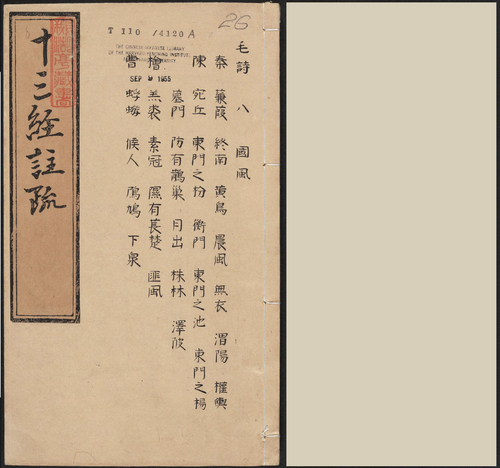 26
T 110 /4120A
THE CHINESE-JAPANESE LIBRARY
OF THE HARVARD-YENCHING INSTITUTE
SEP 9 1955
毛詩 八 國風
秦 蒹葭 終南 黃鳥 晨風 無衣 渭陽 權輿
陳 宛丘 東門之枌 衡門 東門之池 東門之楊
墓門 防有鵲巢 月出 株林 澤陂
檜 羔裘 素冠 隰有萇楚 匪風
曹 蜉蝣 候人 鳲鳩 下泉
十三經註疏